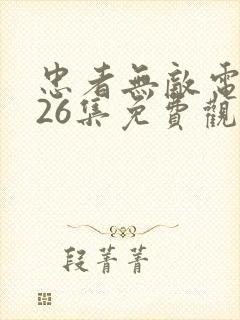 忠者無敵電
26集免費觀
段菁菁